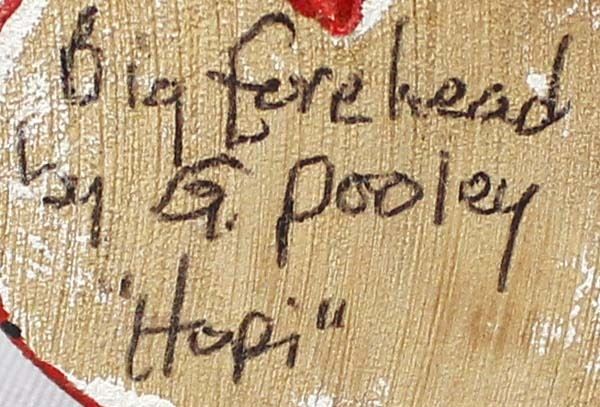 Big forehead
by G. Pooley
"Hopi"